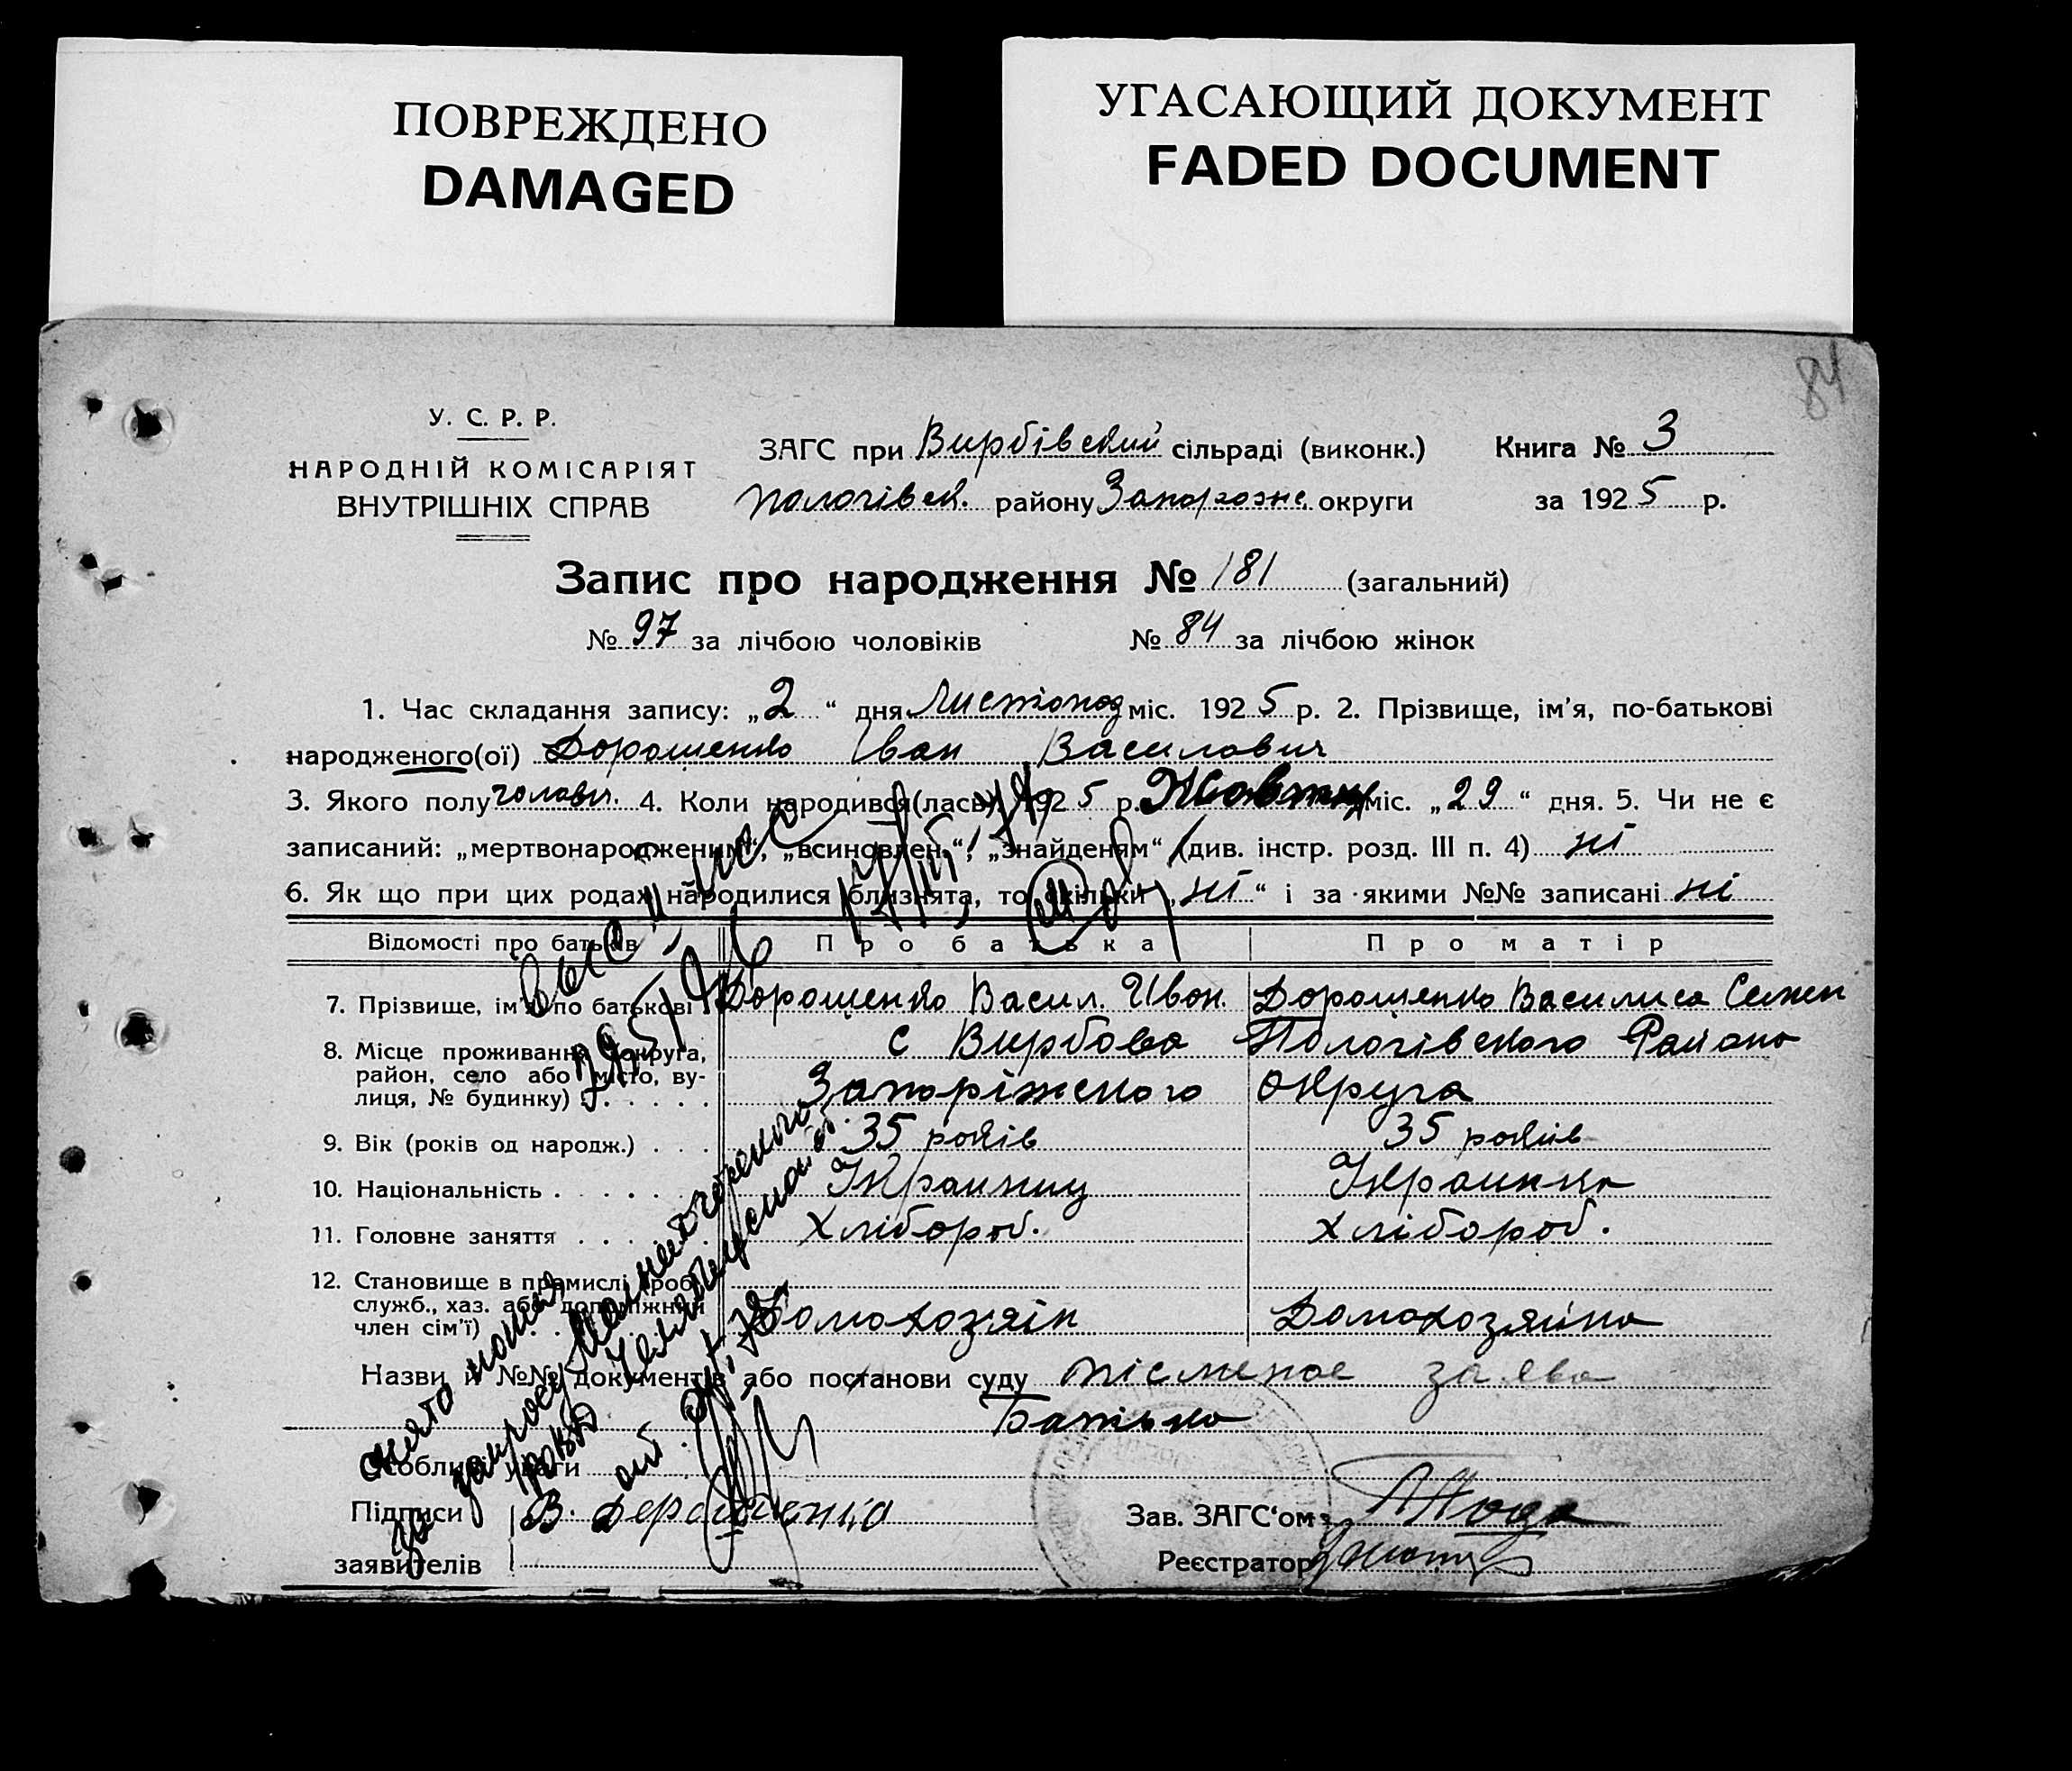 ПОВРЕЖДЕНО
DAMAGED
УГАСАЮЩИЙ ДОКУМЕНТ
FADED DOCUMENT
84
У. С. Р. Р.
НАРОДНІЙ КОМІСАРІЯТ
ВНУТРІШНІХ СПРАВ
ЗАГС при Вирбівский сільраді (виконк.) Книга № 3
Пологівск. району Запорозне. округи за 1925 р.
Запис про народження № 181 (загальний)
№ 97 за лічбою чоловіків № 84 за лічбою жінок
1. Час складання запису: „2“ дня Листопад міс. 1925 р. 2. Прізвище, ім'я, по-батькові
народженого(ої) Дорошенко Іван Василович
3. Якого полу чолавч. 4. Коли народився(лась) 1925 р. Жовтня міс. „29“ дня. 5. Чи не є
записаний: „мертвонародженим“, „всиновлен.“, „знайденям“ (див. інстр. розд. III п. 4) ні
6. Як що при цих родах народилися близнята, то скільки „ні“ і за якими №№ записані ні
Відомості про батьків Про батька Про матір
7. Прізвище, ім'я, по батькові Дорошенко Васил. Ивон. Дорошенко Василиса Семен
8. Місце проживання (округа, район, село або місто, вулиця, № будинку) с Вирбова Пологівського Району
Запоріжского округа
9. Вік (років од народж.) 35 років 35 років
10. Національність Украинец Украинка
11. Головне заняття Хлібороб. Хлібороб.
12. Становище в промислі (роб. служб., хаз. або допоміжний член сім'ї) Домохозяін Домохозяйна
Назви й №№ документів або постанови суду пісменое заява
Батька
Особливі уваги
Підписи В. Дерошенко Зав. ЗАГС'ом
заявителів Реєстратор
снято копия
за запросу